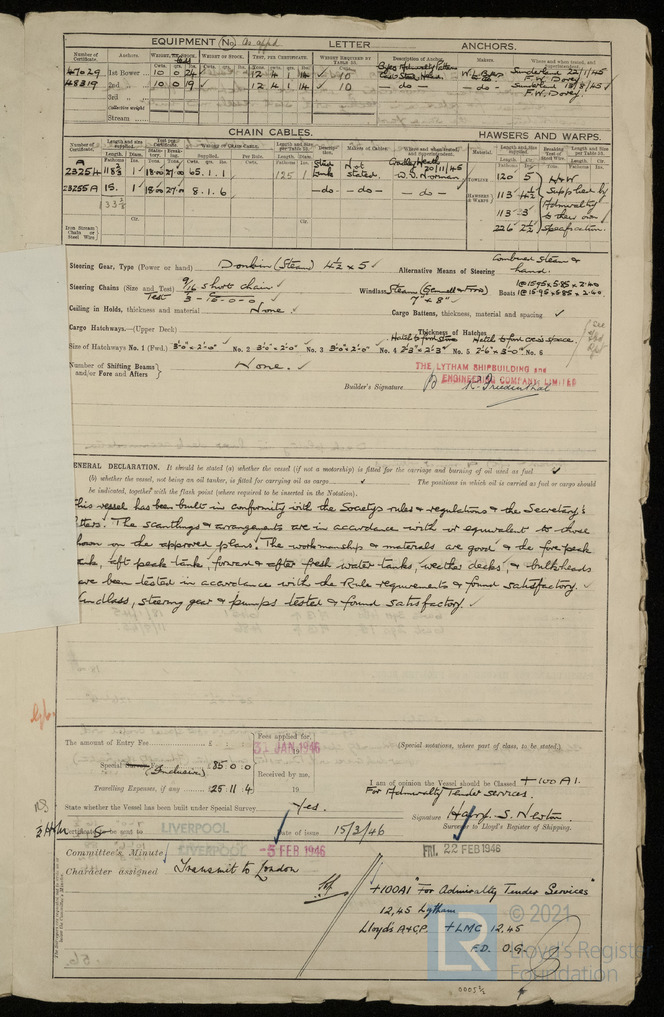 EQUIPMENT (No. as appd LETTER ANCHORS.
Number of Certificate. Anchors. WEIGHT, Ex. STOCK. WEIGHT OF STOCK. TEST, PER CERTIFICATE. WEIGHT REQUIRED BY TABLE 53. Description of Anchor. Makers. Where and when tested, and Superintendent.
Cwts. qrs. lbs. Cwts. qrs. lbs. Tons. cwts. qrs. lbs. Cwts.
47029 1st Bower 10 0 24 ✓ 12 4 1 14 ✓ 10 Byers Admiralty Pattern Cast Steel Head. W.L. Byers Sunderland 22/1/45 F.W. Dovey
48319 2nd „ 10 0 19 ✓ 12 4 1 14 ✓ 10 — do — — do — Sunderland 13/8/45 ✓ F.W. Dovey.
3rd „
Collective weight
Stream
CHAIN CABLES. HAWSERS AND WARPS.
A 23254 118 2/3 1 ✓ 18·00 27·00 65.1.1 125 1 Stud Link Not stated. Cradley Heath 20/11/45 W.V. Norman
23255A 15. 1 ✓ 18·00 27·00 8.1.6 — do — — do — — do —
133 2/3
Iron Stream Chain or Steel Wire
TOWLINE 120 5
HAWSERS & WARPS 113 4½
113 3
226 2½
H&W Supplied by Admiralty to their own specification.
Steering Gear, Type (Power or hand) Donkin (Steam) 4½ x 5 ✓ Alternative Means of Steering Combined steam & hand.
Steering Chains (Size and Test) 9/16 short chain ✓ Test 3-15-0-0 ✓ Windlass Steam (Gemmell & Frow) 7" x 8" ✓ Boats 1@15·95x5·85x2·40 1@15·95x5·85x2·40.
Ceiling in Holds, thickness and material None. ✓ Cargo Battens, thickness, material and spacing ✓
Cargo Hatchways.—(Upper Deck) Thickness of Hatches
Hatch to fwd store Hatch to fwd crew space.
Size of Hatchways No. 1 (Fwd.) 3'-0" x 2'-0" ✓ No. 2 3'-0 x 2'-0 No. 3 3'-0" x 2'-0" No. 4 2'-3" x 2'-3" No. 5 2'-6" x 3'-0" No. 6
Number of Shifting Beams and/or Fore and Afters } None. ✓
THE LYTHAM SHIPBUILDING and ENGINEERING COMPANY LIMITED
Builder's Signature R. Friedenthal
GENERAL DECLARATION. It should be stated (a) whether the vessel (if not a motorship) is fitted for the carriage and burning of oil used as fuel ✓
(b) whether the vessel, not being an oil tanker, is fitted for carrying oil as cargo ✓ The positions in which oil is carried as fuel or cargo should
be indicated, together with the flash point (where required to be inserted in the Notation).
his vessel has been built in conformity with the Society's rules & regulations & the Secretary's
tters. The scantlings & arrangements are in accordance with or equivalent to those
hown on the approved plans. The workmanship & materials are good & the fore peak
ank, aft peak tank, forward & after fresh water tanks, weather decks, & bulkheads
ave been tested in accordance with the Rule requirements & found satisfactory. ✓
indlass, steering gear & pumps tested & found satisfactory. ✓
The amount of Entry Fee £ Fees applied for, 31 JAN 1946 (Special notations, where part of class, to be stated.)
Special (Inclusive) £ 85.0.0 Received by me,
Travelling Expenses, if any £ 25.11.4 19
I am of opinion the Vessel should be Classed +100A1.
For Admiralty Tender Services.
State whether the Vessel has been built under Special Survey Yes.
Signature Harry S. Newton.
Surveyor to Lloyd's Register of Shipping.
Certificate to be sent to LIVERPOOL Date of issue 15/3/46
Committee's Minute LIVERPOOL -5 FEB 1946 FRI. 22 FEB 1946
Character assigned Transmit to London
+100A1 "For Admiralty Tender Services"
12,45 Lytham
Lloyd's A&CP. +LMC 12.45
F.D. O.G.
© 2021
LR
Lloyd's Register
Foundation
0005½